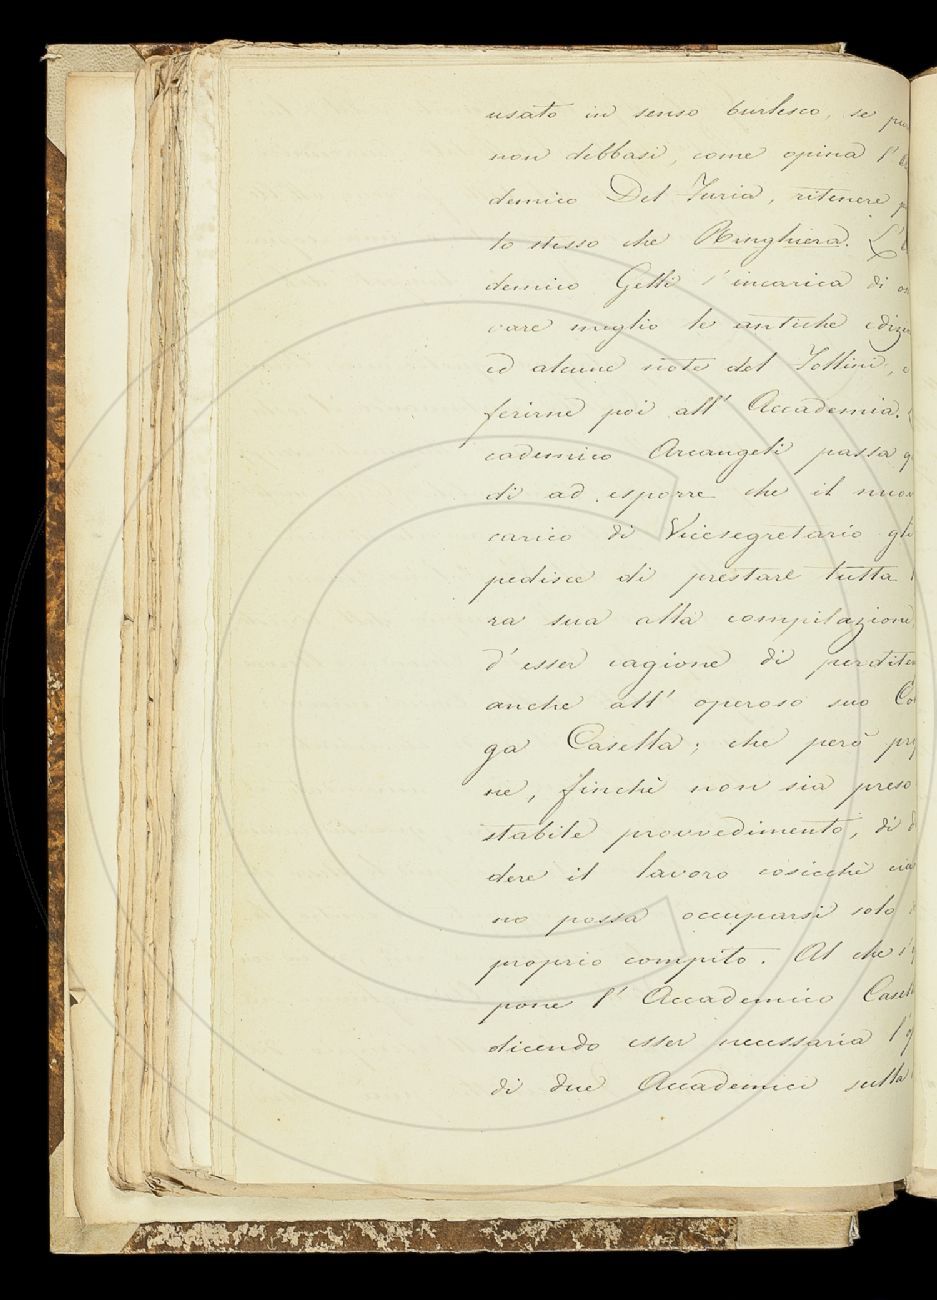 usato in senso burlesco, se
non debbasi, come opina l'
demico Del Furia, ritenere
lo stesso che Ringhiera. L'
demico Gelli l'incarica di
vare meglio le antiche
ed alcune note del Follini,
ferirne poi all' Accademia.
cademico Arcangeli passa
di ad esporre che il nuo
carico di Vicesegretario gli
pedisce di prestare tutta
ra sua alla compilazione,
d'esser cagione di perdite
anche all' operoso suo Co
ga Casella; che però
ne, finchè non sia preso
stabile provvedimento, di d
dere il lavoro cosicchè cia
no possa occuparsi solo
proprio compito. Al che s'
pone l' Accademico Casel
dicendo esser necessaria l'
di due Accademici sulla